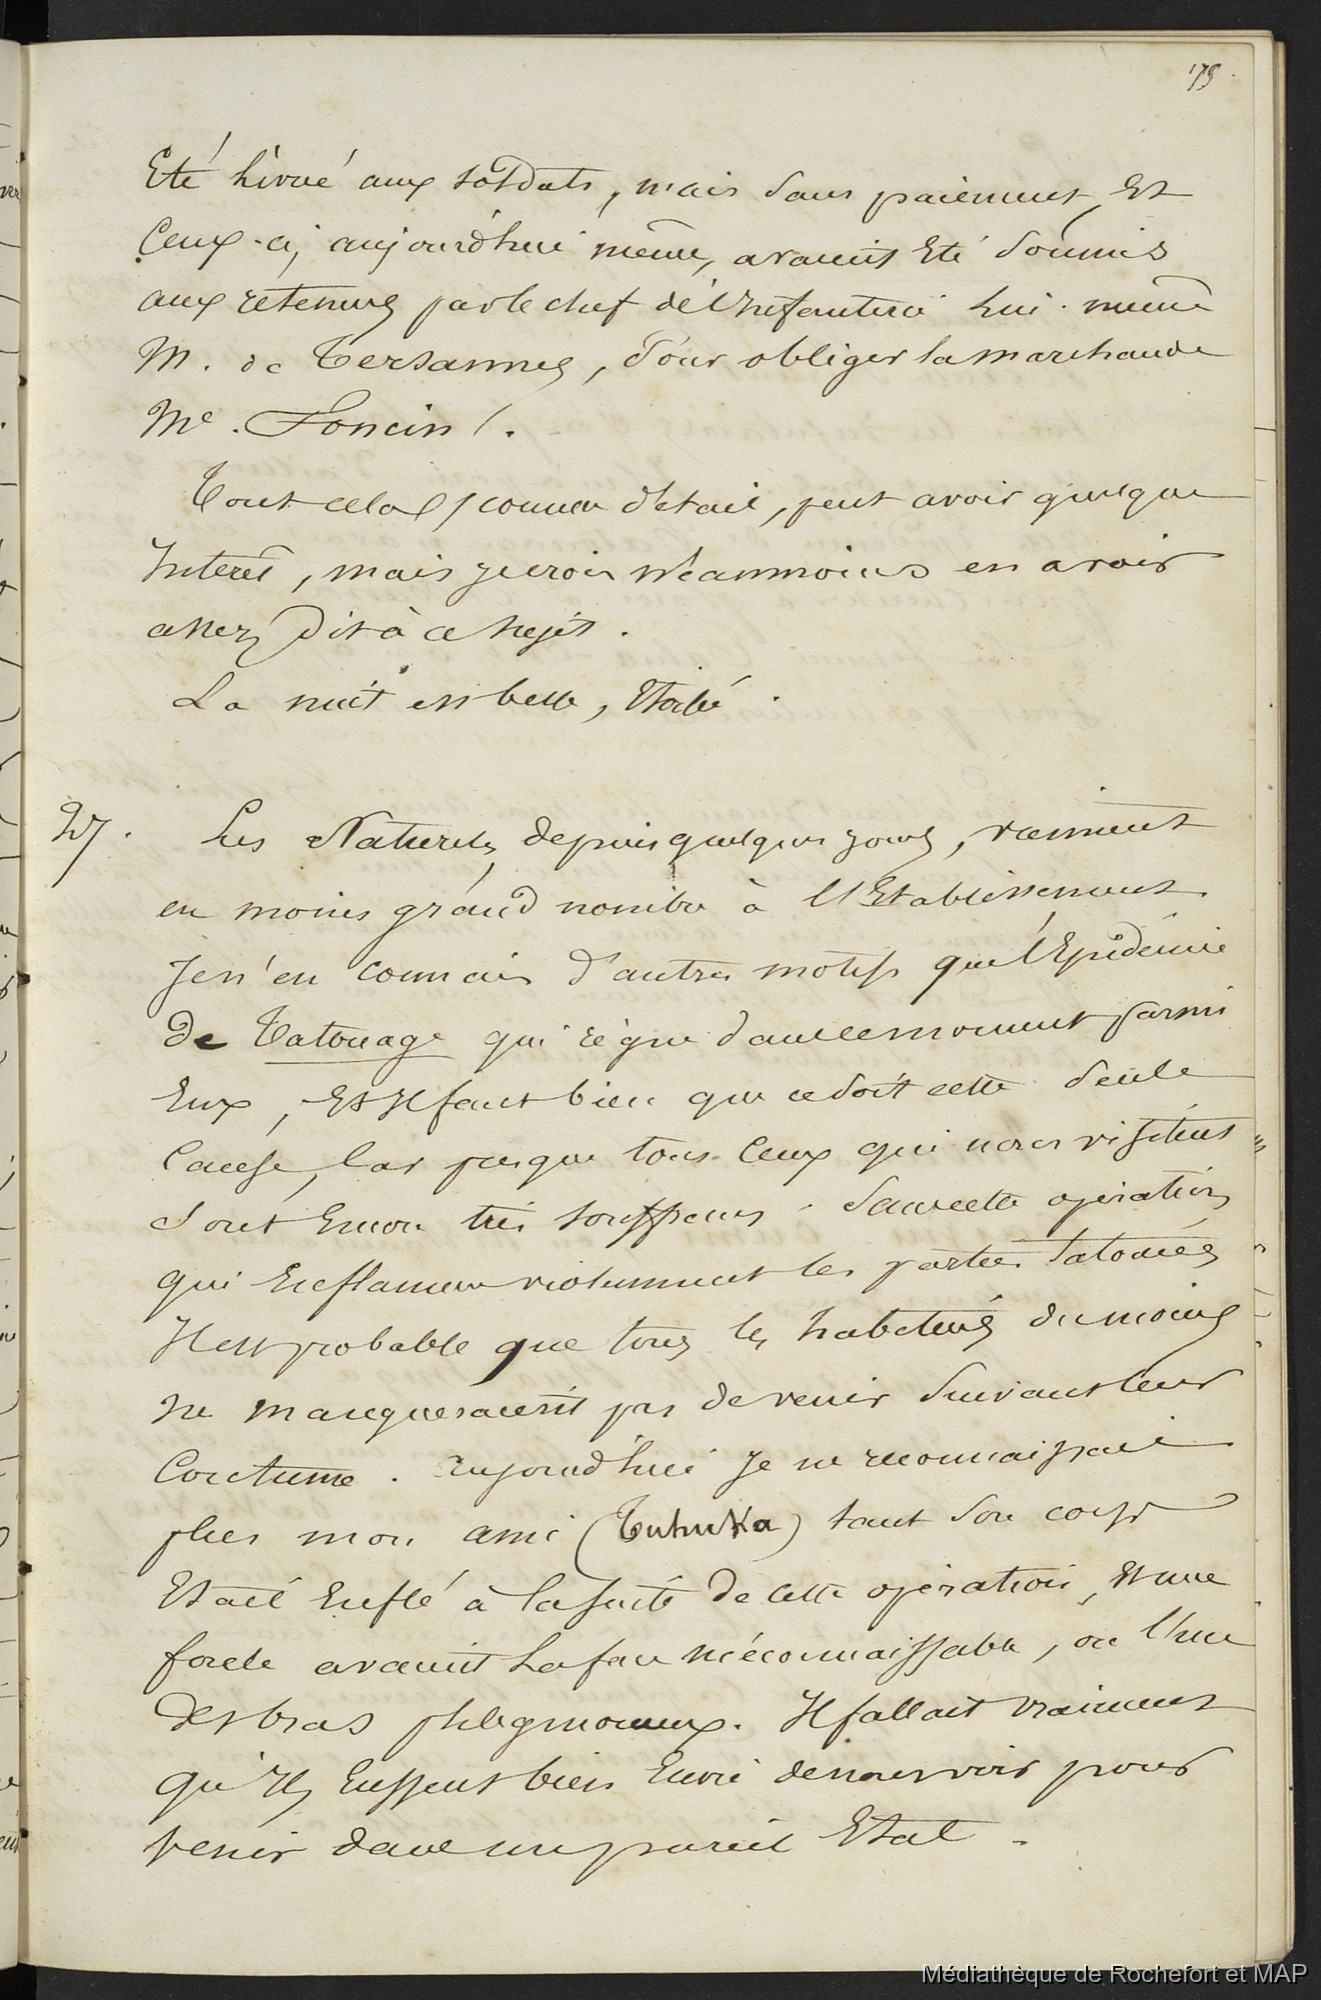 79
Eté livré aux soldats, mais sans paiement, Et
Ceux-ci, aujourd'hui même, avaient Eté soumis
aux retenues par le chef de l'Infanterie lui-même
M. de Tersannes, pour obliger la marchande
Me. Foncin.
Tout cela, comme détail, peut avoir quelque
Intérêt, mais je crois néanmoins en avoir
assez dit à ce sujet.
La nuit est belle, Etoilé.
27. Les Naturels, depuis quelques jours, viennent
en moins grand nombre à l'Etablissement.
Je n'en connais d'autres motifs que l'Epidémie
De Tatouage qui règne dans ce moment parmi
Eux, Et Il faut bien que ce soit cette seule
Cause, Car presque tous Ceux qui nous visitent
sont Encore très souffrans. Sans cette opération
qui Enflamme violemment les parties Tatouées
Il est probable que tous les habitués du moins
ne manqueraient pas de venir suivant leur
Coutume. Aujourd'hui je ne reconnaissais
plus mon ami (Tuhuka) tant son corps
Etait Enflé à la suite de cette opération, Et une
foule avaient La face méconnaissable, ou l'un
des bras phlegmoneux. Il fallait vraiment
qu'Ils Eussent bien Envie de nous voir pour
venir dans un pareil Etat.
Médiathèque de Rochefort et MAP